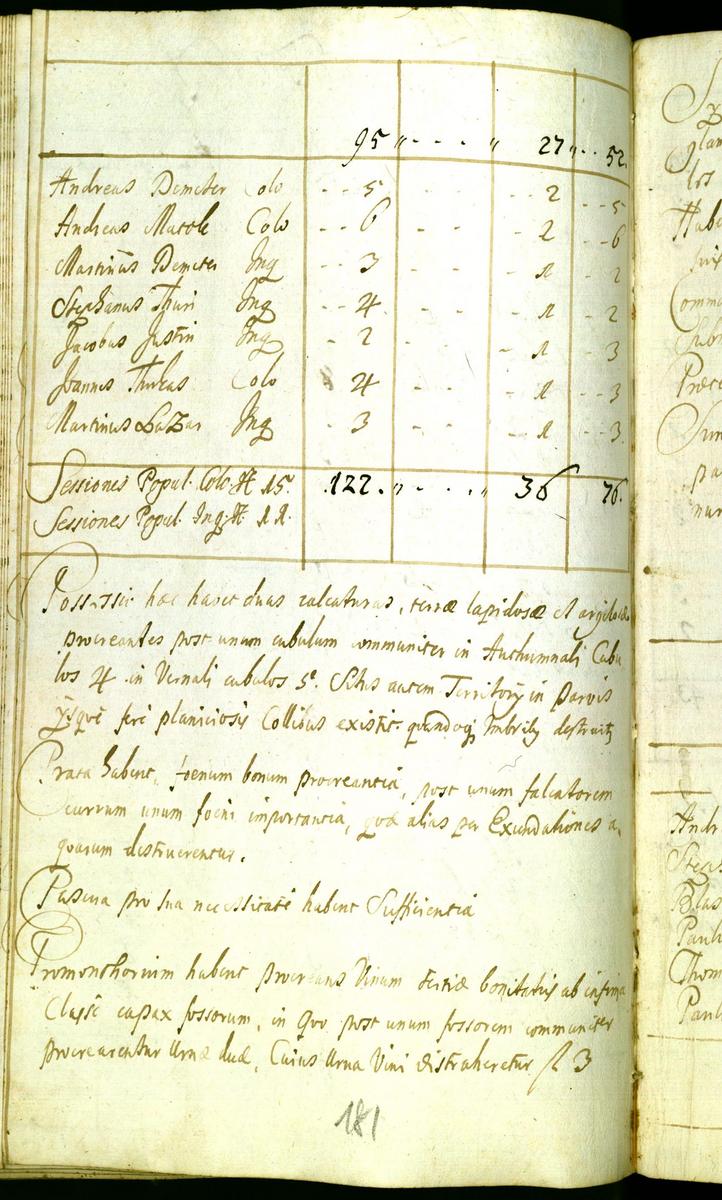 95 " - - - " 27 " - - 52.
Andreas Demeter Colo - - 5 - - - - 2 - - 5
Andreas Matok Colo - - 6 - - - - 2 - - 6
Martinus Demeter Inq - - 3 - - - - 1 - 2
Stephanus Thuri Inq - - 4 - - - - 1 - - 2
Jacobus Justin Inq - 2 - - - 1 - - 3
Joannes Colo 4 - - - 1 - - 3
Martinus LaZar Inq - 3 - - - 1 - - 3.
Sessiones Popul. Colo. 15. 122. " - - - - " 36 76.
Sessiones Popul. Inq. 11.
Possessio hæc habet duas calcaturas, terræ lapidosæ et
procreantes post unum cubulum communiter in Authumnali Cubu
los 4 in Vernali cubulos 5. Situs autem Territorÿ in parvis
ÿsque fere planiciosis Collibus existit. quandoq Imbriby destruitz
Prata habent, foenum bonum procreantia, post unum falcatorem
currum unum foeni importantia, quæ alias per Exundationes a.
quarum destruerentur.
Pascua pro sua necessitate habent Sufficientia
Promonthorium habent procreans Vinum tertiæ bonitatis ab infima
Classe capax fossorum, in quo post unum fossorem communiter
procrearentur Urnæ duæ, Cuius Urna Vini distraheretur fl 3
181